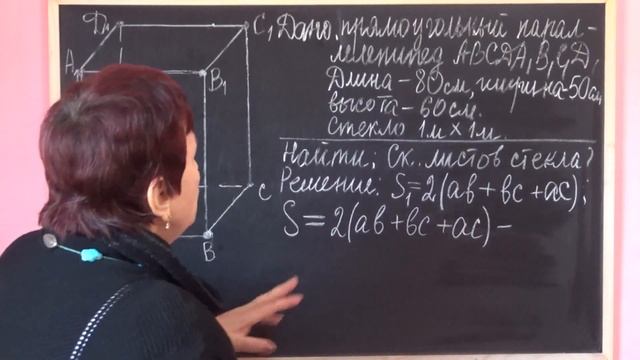 Д₁
C₁
A₁
B₁
C
B
Дано: прямоугольный парал-
лелепипед ABCDA₁B₁C₁D₁
Длина – 80см, ширина – 50см,
высота – 60см.
Стекло 1м × 1м.
Найти: Ск. листов стекла?
Решение: S₁=2(ab+bc+ac);
S=2(ab+bc+ac) –